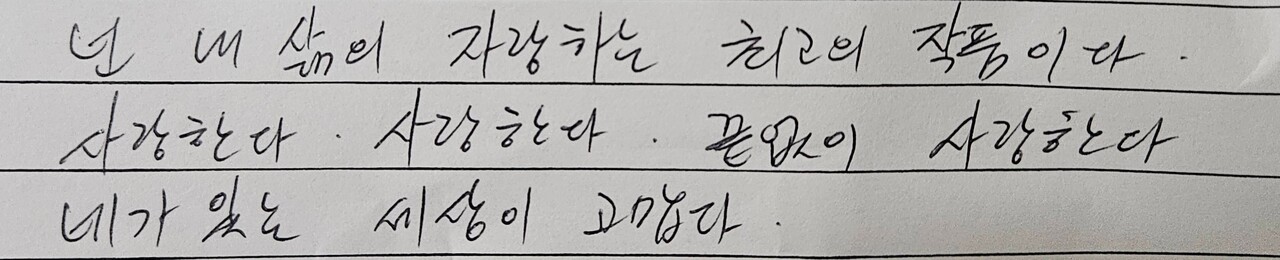 넌 내 삶의 자랑하는 최고의 작품이다.
사랑한다. 사랑한다. 끝없이 사랑한다
네가 있는 세상이 고맙다.